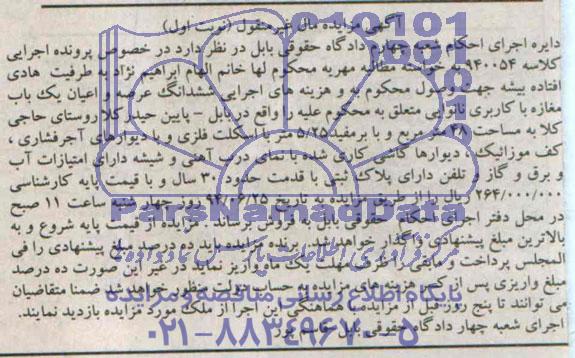 آگهی مزایده مال غیرمنقول (نوبت اول)
دایره اجرای احکام شعبه چهارم دادگاه حقوقی بابل در نظر دارد در خصوص پرونده اجرایی
کلاسه ۹۴۰۰۵۴ خواسته مطالبه مهریه محکوم لها خانم الهام ابراهیم نژاد به طرفیت هادی
افتاده پیشه جهت وصول محکوم به و هزینه های اجرایی ششدانگ عرصه و اعیان یک باب
مغازه با کاربری نانوایی متعلق به محکوم علیه را واقع در بابل - پایین حیدرکلا روستای حاجی
کلا به مساحت ۲۸ متر مربع و با برمفید ۵/۲۵ متر با اسکلت فلزی و با دیوارهای آجرفشاری ،
کف موزائیک ، دیوارها کاشی کاری شده با نمای درب آهنی و شیشه دارای امتیازات آب
و برق و گاز ، تلفن دارای پلاک ثبتی با قدمت حدود ۳۰ سال و با قیمت پایه کارشناسی
۲۶۴/۰۰۰/۰۰۰ ریال را از طریق مزایده به تاریخ ۹۴/۰۶/۲۵ روز چهار شنبه ساعت ۱۱ صبح
در محل دفتر اجرای احکام حقوقی بابل به فروش برساند . مزایده از قیمت پایه شروع و به
بالاترین مبلغ پیشنهادی واگذار خواهد شد . برنده مزایده باید ده درصد مبلغ پیشنهادی را فی
المجلس پرداخت و مابقی را ظرف مهلت یک ماه واریز نماید در غیر این صورت ده درصد
مبلغ واریزی پس از کسر هزینه های مزایده به حساب دولت منظور خواهد شد ضمنا متقاضیان
می توانند تا پنج روز قبل از مزایده با هماهنگی این اجرا از ملک مورد مزایده بازدید نمایند.
اجرای شعبه چهار دادگاه حقوقی بابل - قاسم پور
ParsNamadData
پایگاه اطلاع رسانی مناقصه و مزایده
۰۲۱-۸۸۳۴۹۶۷۰-۵